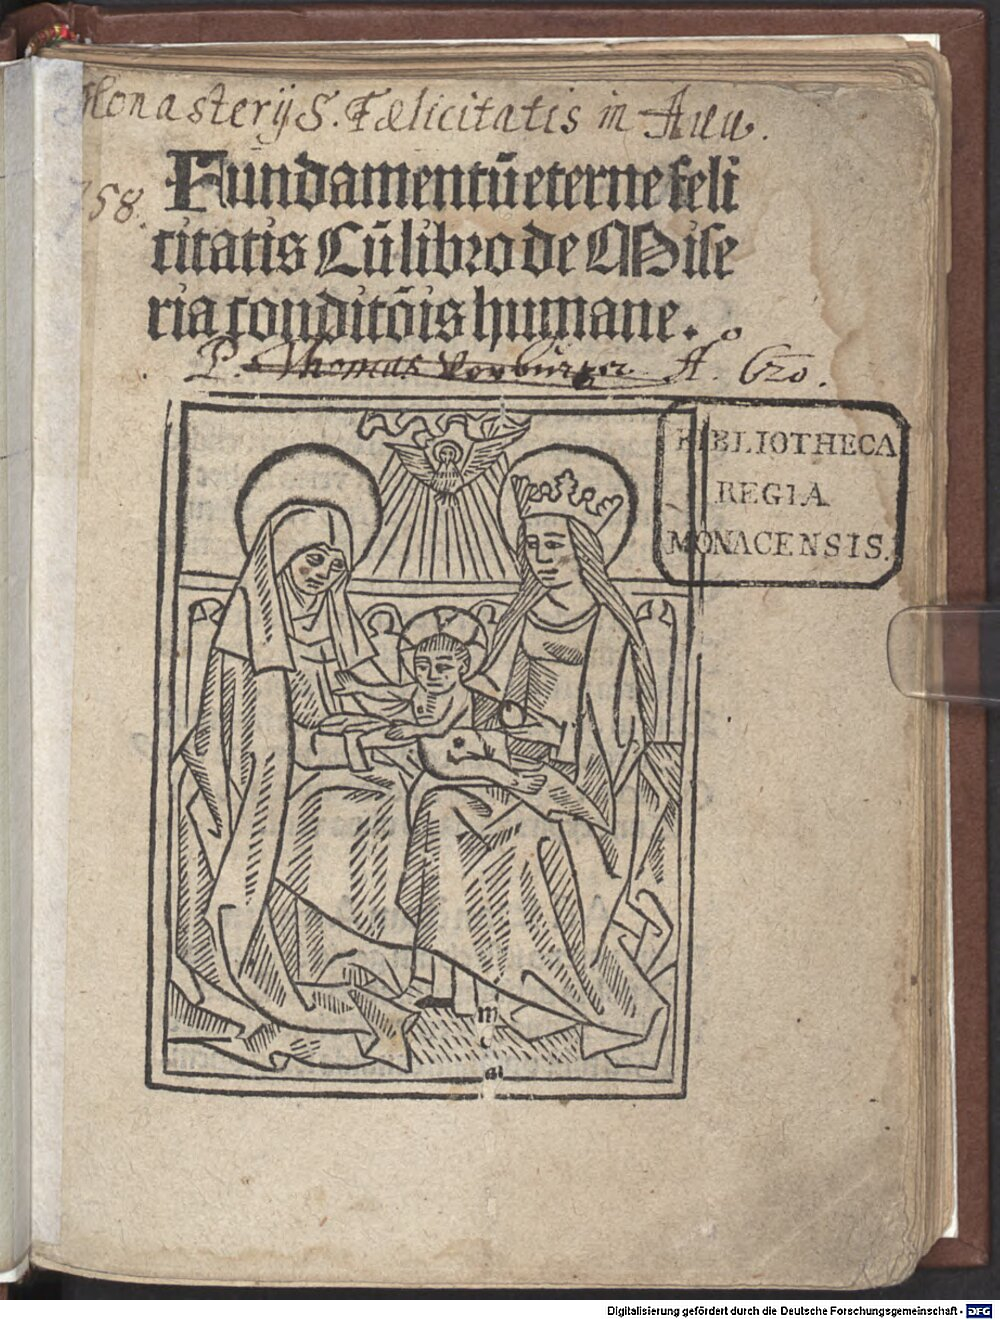 Monasterij S. Fælicitatis in Auu.
758.
Fundamentū eterne feli
citatis Cū libro de Mise
ria conditōis humane.
P. Thomas Vorburger Aº. 620.
BIBLIOTHECA
REGIA
MONACENSIS.
Digitalisierung gefördert durch die Deutsche Forschungsgemeinschaft - DFG